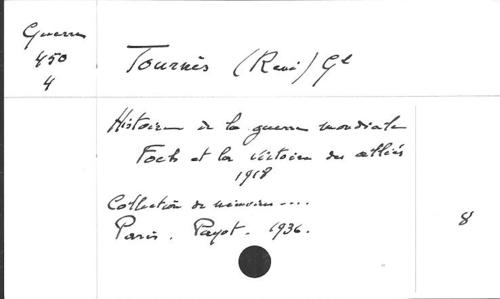 Guerre
450
4
Tournès (René) Gl
Histoire de la guerre mondiale
Foch et la victoire des alliés
1918
Collection de mémoires ....
Paris. Payot. 1936.
8